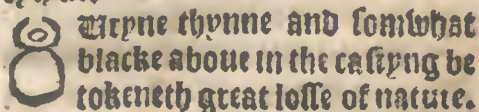 8 Uryne thynne and somwhat
blacke aboue in the castyng be
tokeneth great losse of nature.